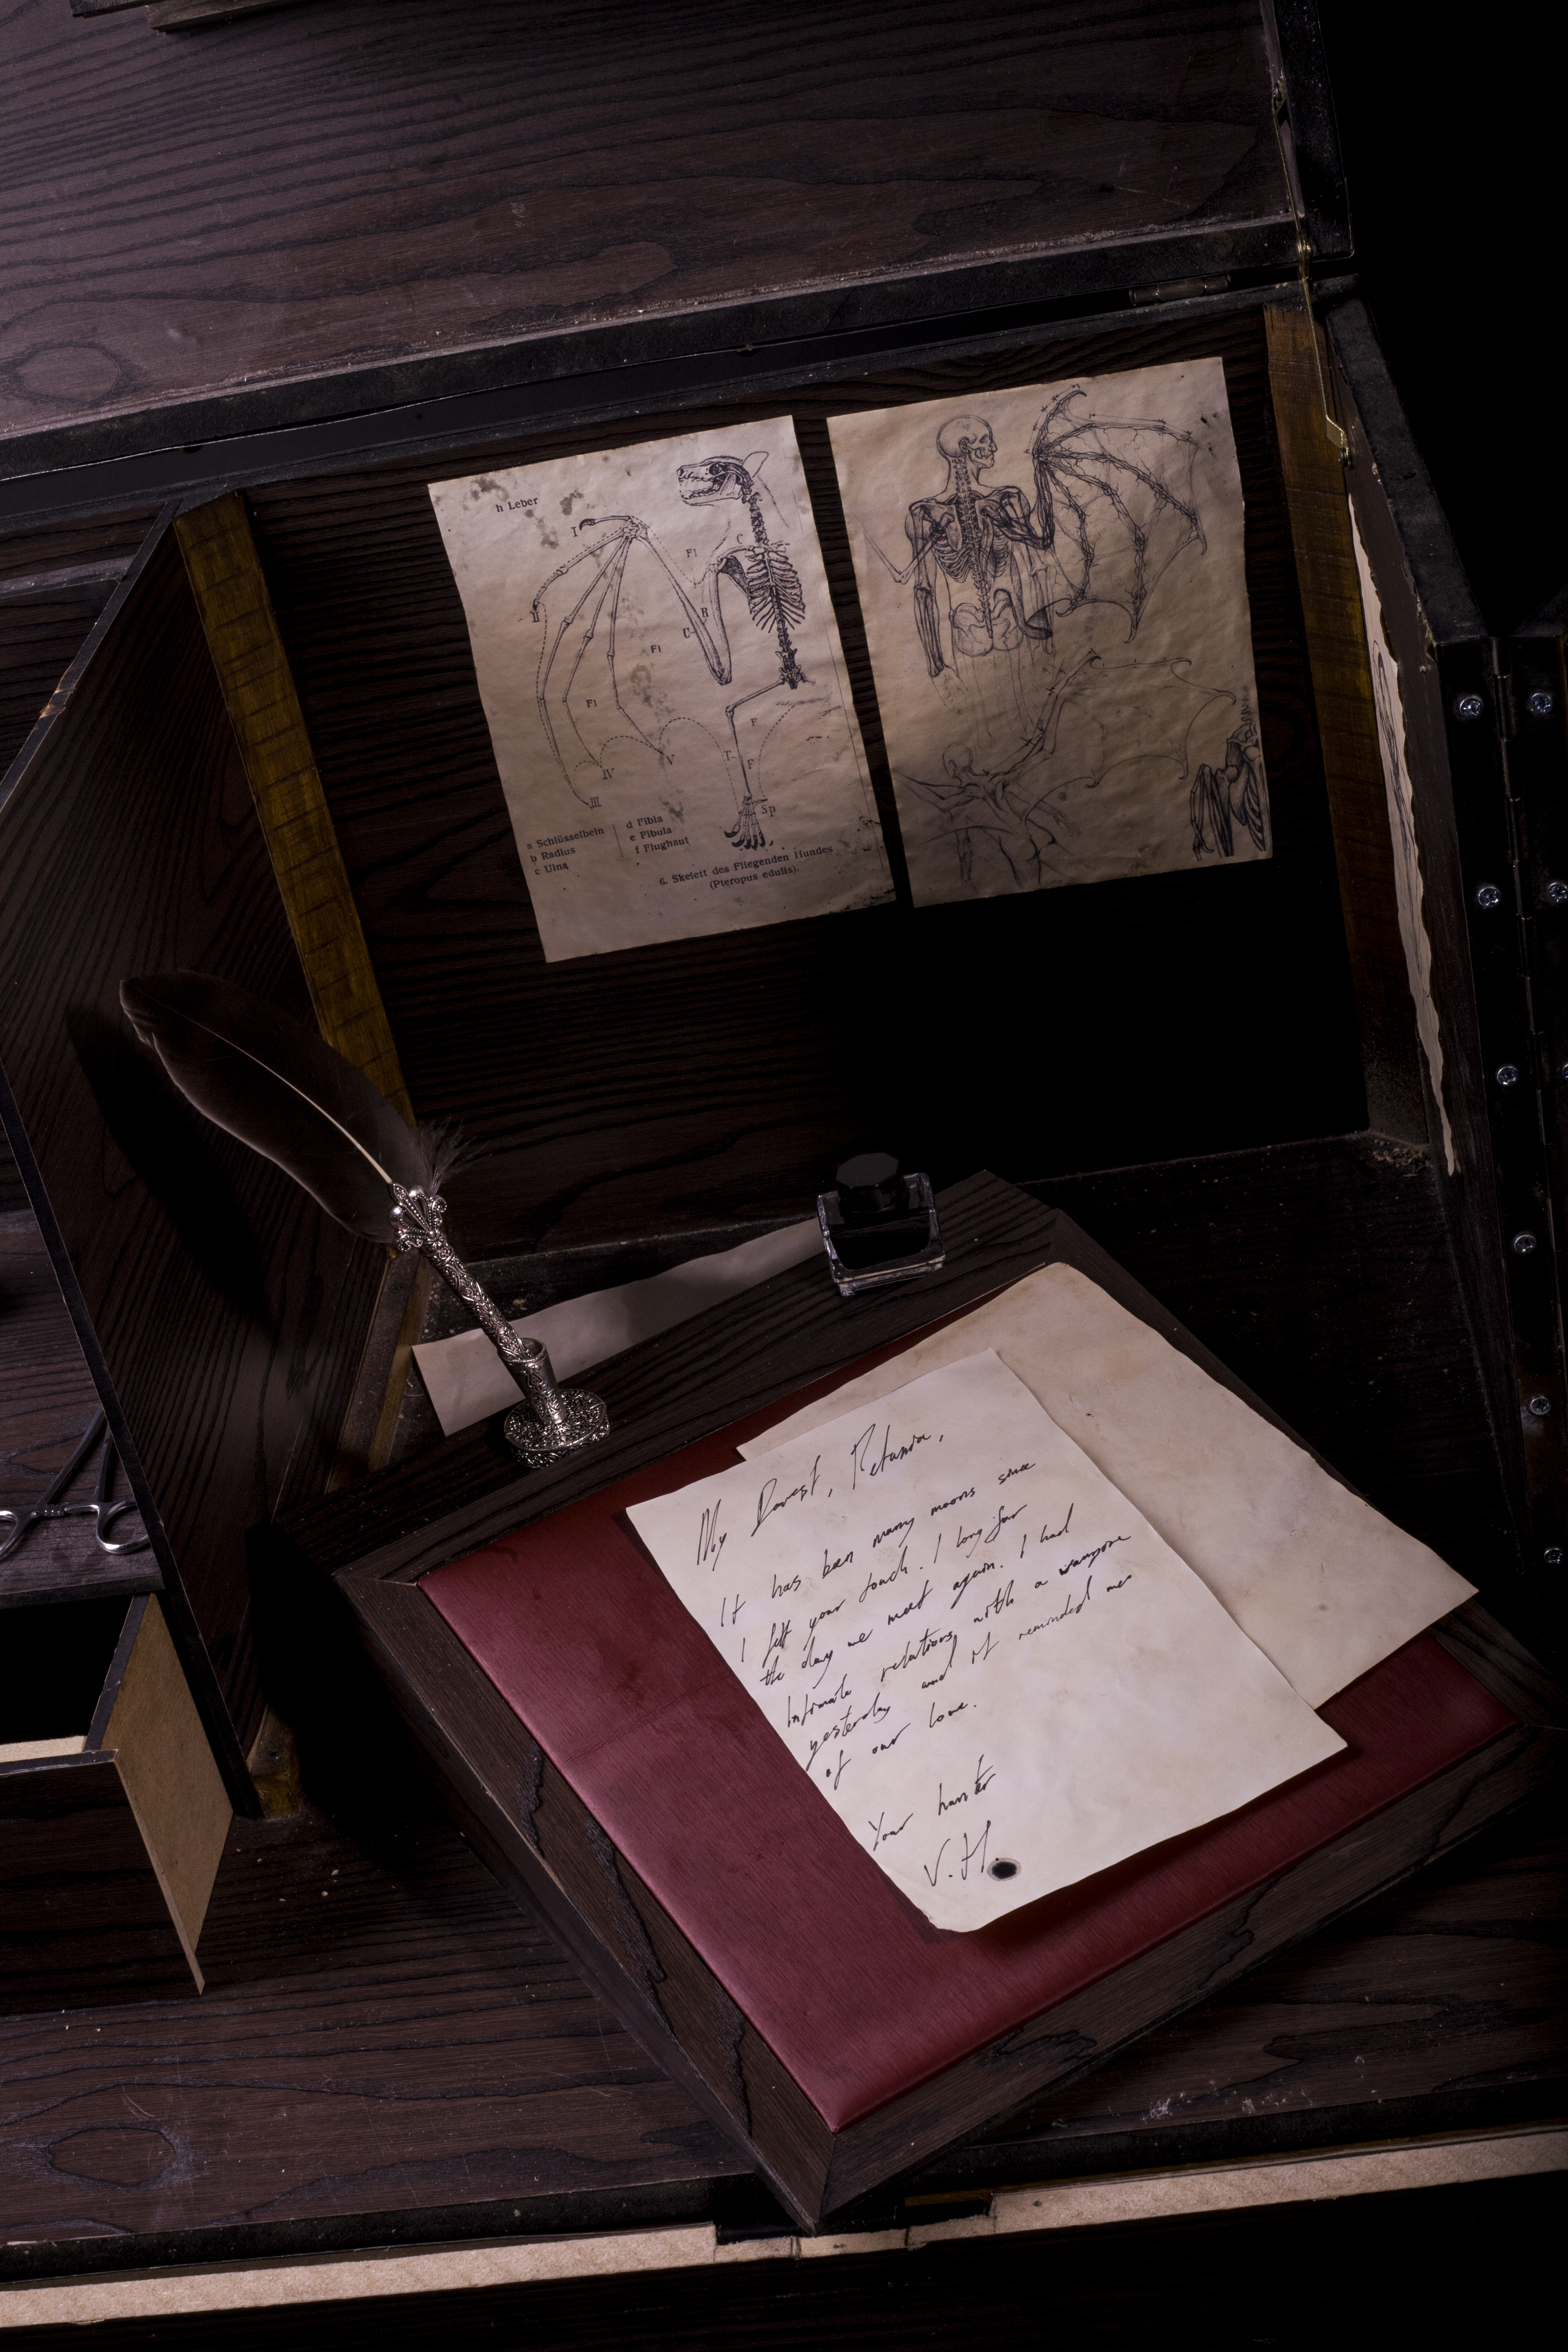 h Leber
I
Fl
C
II
R
U
Fl
Fl
F
T
F
V
IV
III
Sp
a Schlüsselbein
b Radius
c Ulna
d Fibia
e Fibula
f Flughaut
6. Skelett des Fliegenden Hundes
(Pteropus edulis).
My Darest, Petunia,
It has been many moons since
I felt your touch. I long for
the day we meet again. I had
intimate relations with a vampire
yesterday and it reminded me
of our love.
Your hunter
V.H.